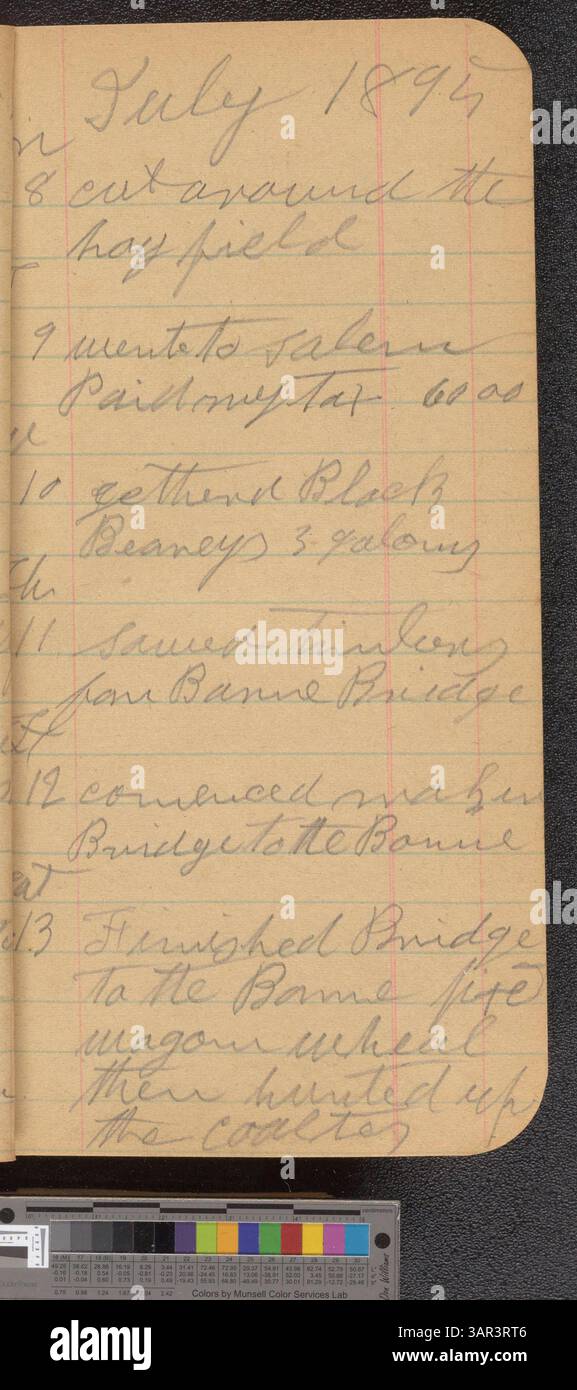 July 1895
8 cut around the
hay field
9 wente to salem
Paid my tax 60 00
10 getherd Black
Bearreys 3 galons
11 sawed timbers
forr Barne Bridge
12 comenced maken
Bridge to the Barne
at
13 Finished Bridge
to the Barne fixed
wagon wheal
then hunted up
the coaltes
Colors by Munsell Color Services Lab
alamy
Image ID: 3AR3RT6
www.alamy.com